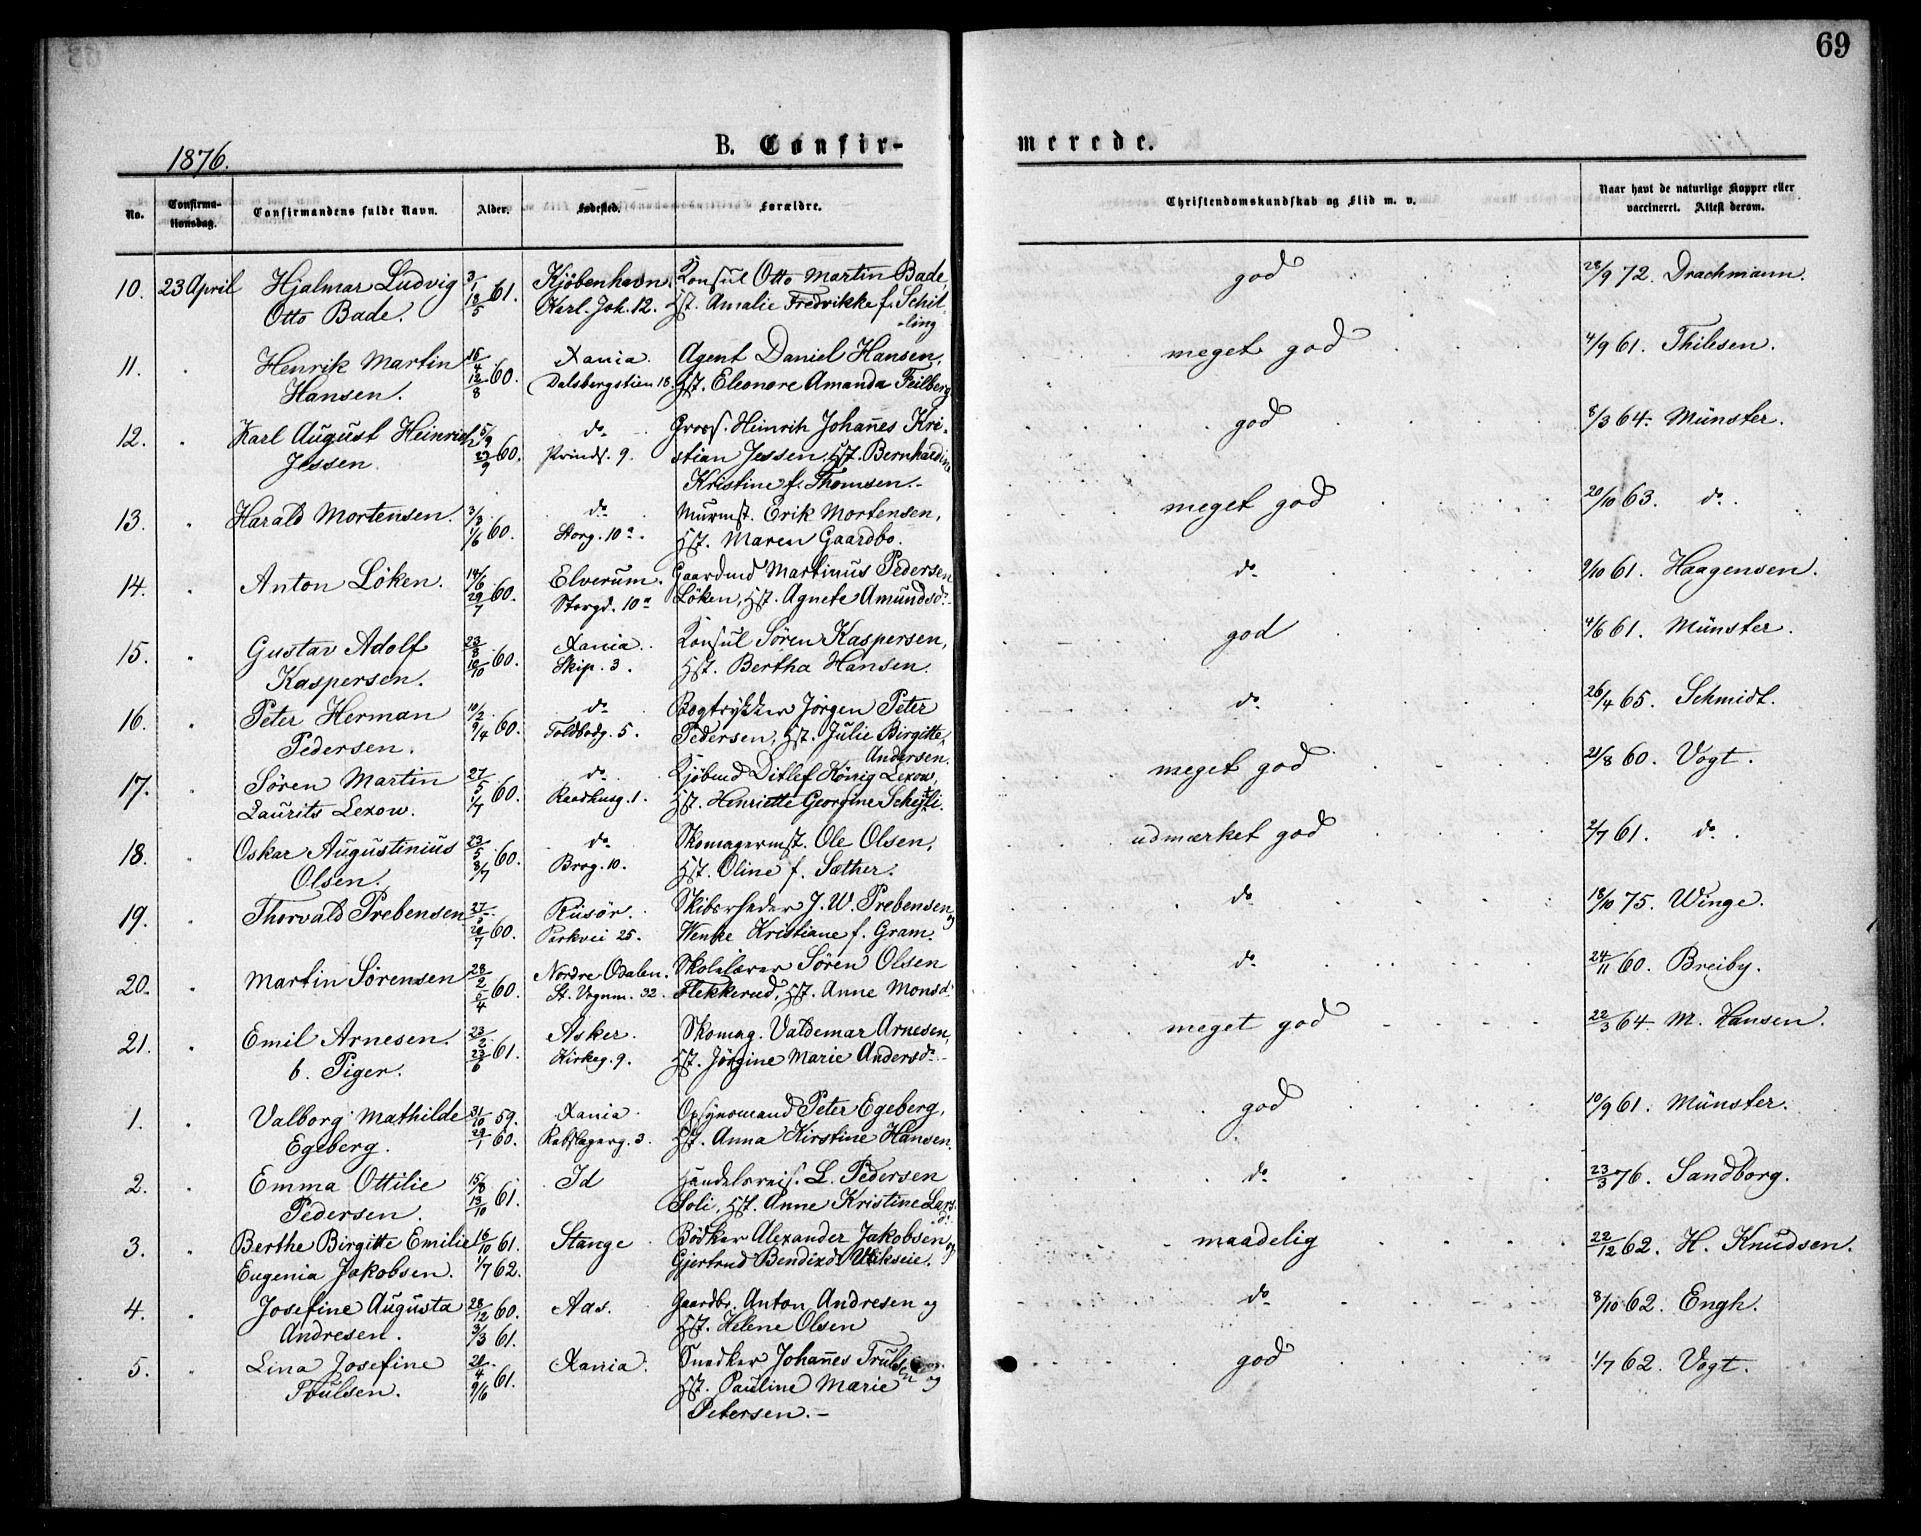 69
1876.
B. Confir-
merede.
No.
Confirma-
tionsdag.
Confirmandens fulde Navn.
Alder.
Fødested.
Forældre.
Christendomskundskab og Flid m. v.
Naar havt de naturlige Kopper eller
vaccineret. Attest derom.
10. 23 April Hjalmar Ludvig 3/1 61. Kjøbenhavn. Konsul Otto Martin Bade, god 28/9 72. Drachmann.
Otto Bade. 18/5 Karl. Joh. 12. Hst. Amalie Fredrikke f. Schil-
-ling
11. " Henrik Martin 16/4 60. Xania. Agent Daniel Hansen, meget god 4/9 61. Thilesen.
Hansen. 12/8 Dalsbergstien 18. Hst. Eleonore Amanda Feilberg
12. " Karl August Heinrich 5/9 60. do Gross. Heinrih Johañes Kri- god 8/3 64. Münster.
Jessen. 23/9 Prinds. 9. stian Jessen, Hst. Bernhardine
Kristine f. Thomsen.-
13. " Harald Mortensen. 3/3 60. do Murmst. Erik Mortensen, meget god 20/10 63. do.
1/6 Storg. 10a. Hst. Maren Gaardbo.
14. " Anton Löken. 14/6 60. Elverum. Gaardmd Martinus Pedersen do 9/10 61. Haagensen.
29/7 Storgd. 10a Löken, Hst. Agnete Amundsdr.
15. " Gustav Adolf 23/8 60. Xania. Konsul Sören Kaspersen, god 4/6 61. Münster.
Kaspersen. 10/10 Skip. 3. Hst. Bertha Hansen.
16. " Peter Herman 10/2 60. do Bogtrykker Jörgen Peter do 26/4 65. Schmidt.
Pedersen. 9/4 Toldbodg. 5. Pedersen, Hst. Julie Birgitte
Andersen.
17. " Sören Martin 27/5 60. do Kjöbmd Ditlef König Lexow, meget god 21/8 60. Vogt.
Laurits Lexow. 1/7 Raadhusg. 1. Hst. Henriette Georgine
18. " Oskar Augustinius 23/5 60. do Skomagermst. Ole Olsen, udmærket god 2/7 61. do.
Olsen. 8/7 Brog. 10. Hst. Oline f. Sæther.
19. " Thorvald Prebensen 27/5 60. Riisör. Skibsrheder J. W. Prebensen og do 18/10 75. Winge.
20/7 Parkvei 25. Wenke Kristiane f. Gram.
20. " Martin Sörensen 28/2 60. Nordre Odalen. Skolelærer Sören Olsen do 24/11 60. Breiby.
5/4 St. Vognm. 32. Flekkerud, Hst. Anne Monsd.
21. " Emil Arnesen. 23/2 61. Asker. Skomag. Valdemar Arnesen, meget god 22/3 64. M. Hansen.
23/6 Kirkeg. 9. Hst. Jörgine Marie Andersdr
b. Piger.
1. " Valborg Mathilde 31/10 59. Xania. Opsynsmand Peter Egeberg, god 10/9 61. Münster.
Egeberg. 29/1 60. Rebslagerg. 3. Hst. Anna Kirstine Hansen.
2. " Emma Ottilie 15/8 61. Id Handelsreis. L. Pedersen do 23/3 76. Sandborg.
Pedersen. 13/10 Soli, Hst. Anne Kristine Lars-
dr.
3. " Berthe Birgitte Emilie 16/10 61. Stange Bödker Alexander Jakobsen og maadelig 22/12 62. H. Knudsen.
Eugenia Jakobsen. 1/7 62. Gjertrud Bendixdr
4. " Josefine Augusta 28/12 60. Aas. Gaardbr. Anton Andresen og do 8/10 62. Engh.
Andresen. 3/3 61. Hst. Helene Olsen
5. " Lina Josefine 20/4 61. Xania. Snedker Johañes Trulsen og god 1/7 62. Vogt.
Trulsen. 9/6 Hst. Pauline Marie
Petersen.-